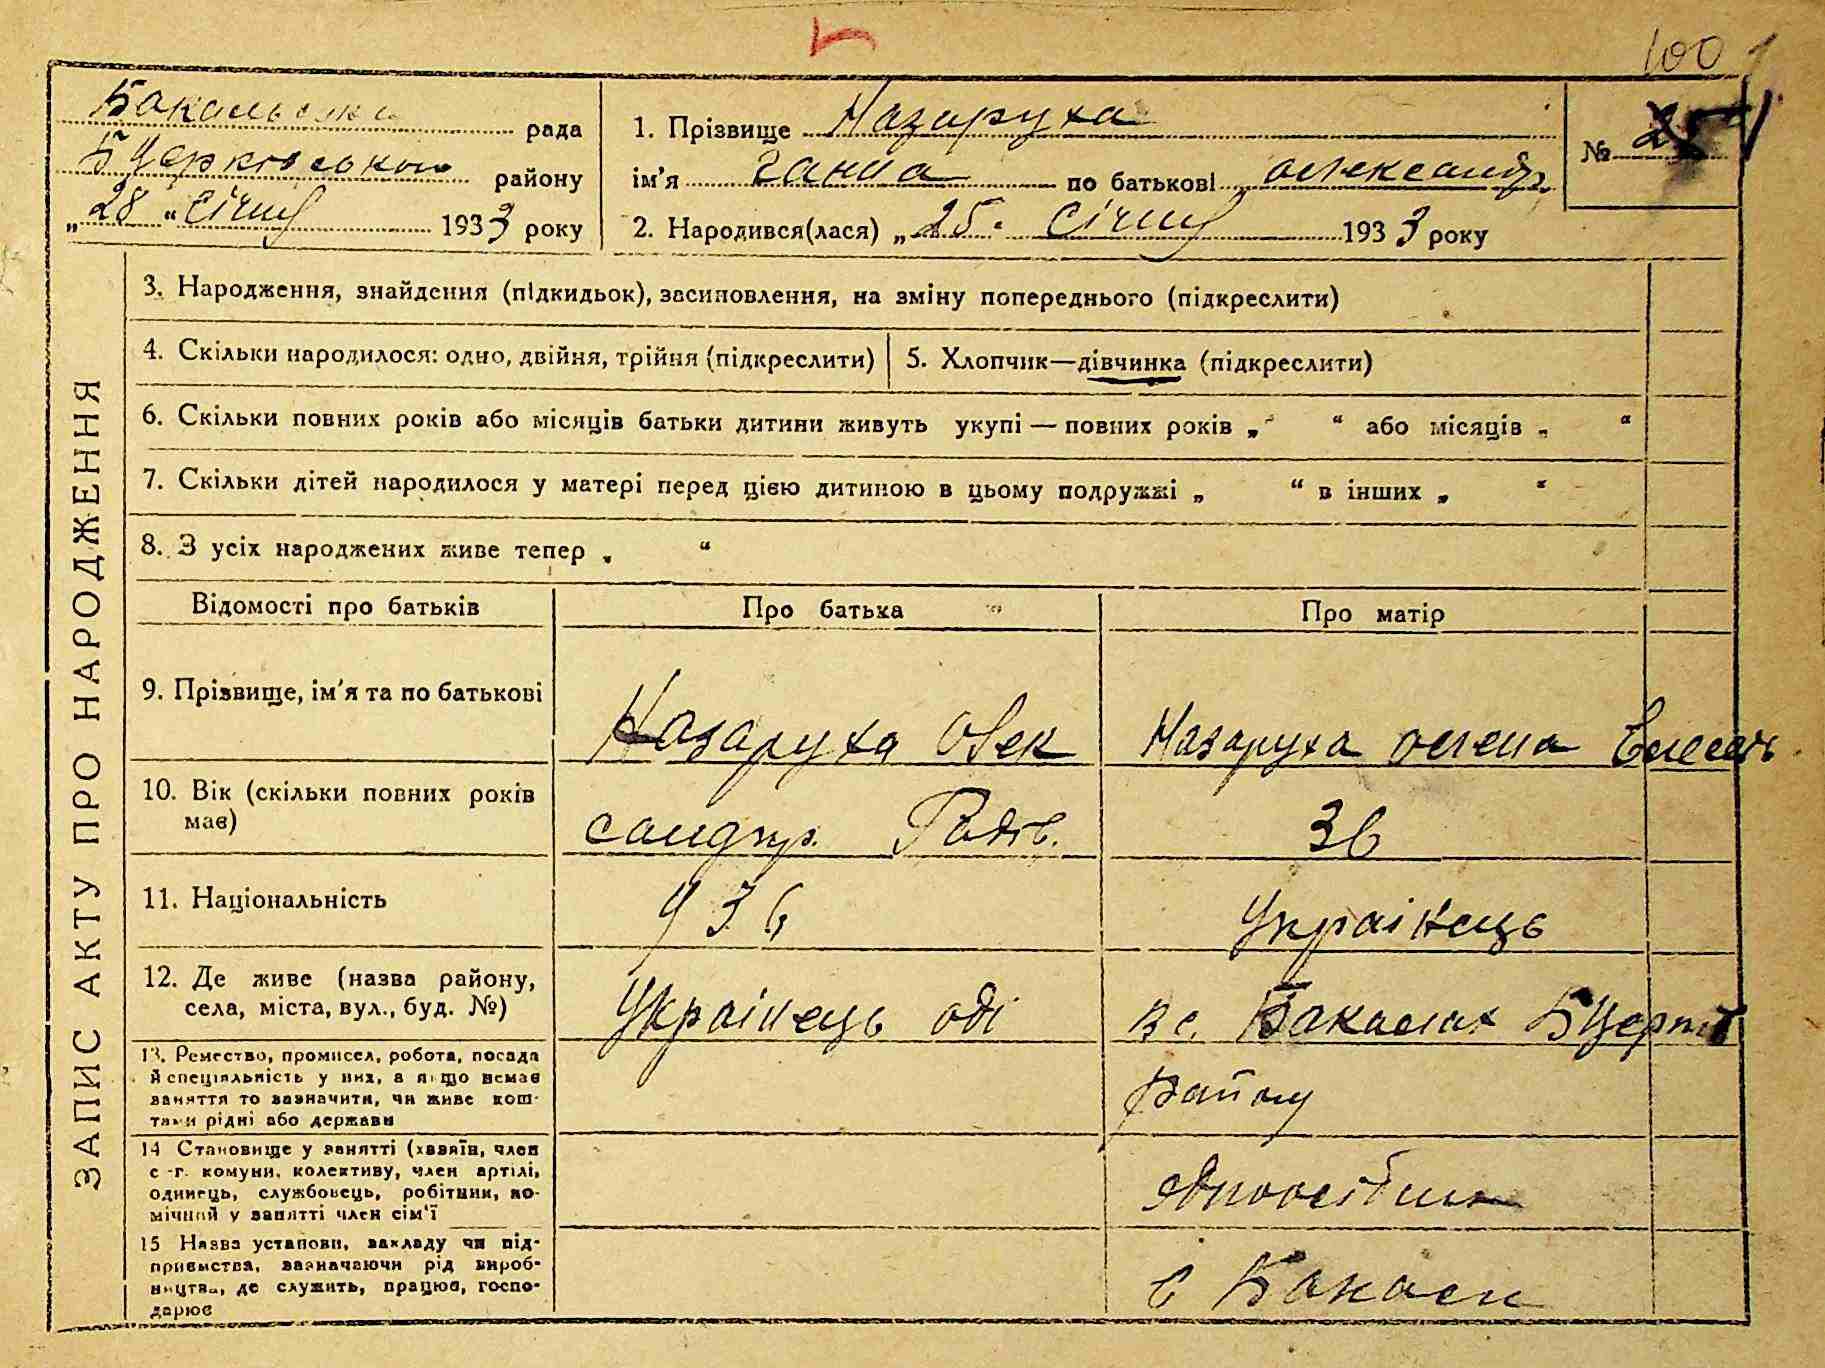 100
Бакальська рада
Бцерківського району
„28“ січня 1933 року
1. Прізвище Назаруха
ім'я Ганна по батькові Олександр.
2. Народився(лася) „25. Січня 1933 року
№
3. Народження, знайдення (підкидьок), засиновлення, на зміну попереднього (підкреслити)
4. Скільки народилося: одно, двійня, трійня (підкреслити)
5. Хлопчик—дівчинка (підкреслити)
6. Скільки повних років або місяців батьки дитини живуть укупі — повних років „ “ або місяців „ “
7. Скільки дітей народилося у матері перед цією дитиною в цьому подружжі „ “ в інших „ “
8. З усіх народжених живе тепер „ “
ЗАПИС АКТУ ПРО НАРОДЖЕННЯ
Відомості про батьків
Про батька
Про матір
9. Прізвище, ім'я та по батькові
Назаруха Олек
Назаруха олена
10. Вік (скільки повних років
має)
сандр.
36
11. Національність
36
Украінець
12. Де живе (назва району,
села, міста, вул., буд. №)
Украінець
в с. Бакалах БЦерків
13. Ремество, промисел, робота, посада
й спеціяльність у них, а якщо немає
заняття то зазначити, чи живе кош-
тами рідні або держави
району
14 Становище у занятті (хазяїн, член
с.-г. комуни, колективу, член артілі,
одинець, службовець, робітник, по-
мічний у занятті член сім'ї
одноосібник
15 Назва установи, закладу чи під-
приємства, зазначаючи рід вироб-
ництва, де служить, працює, госпо-
дарює